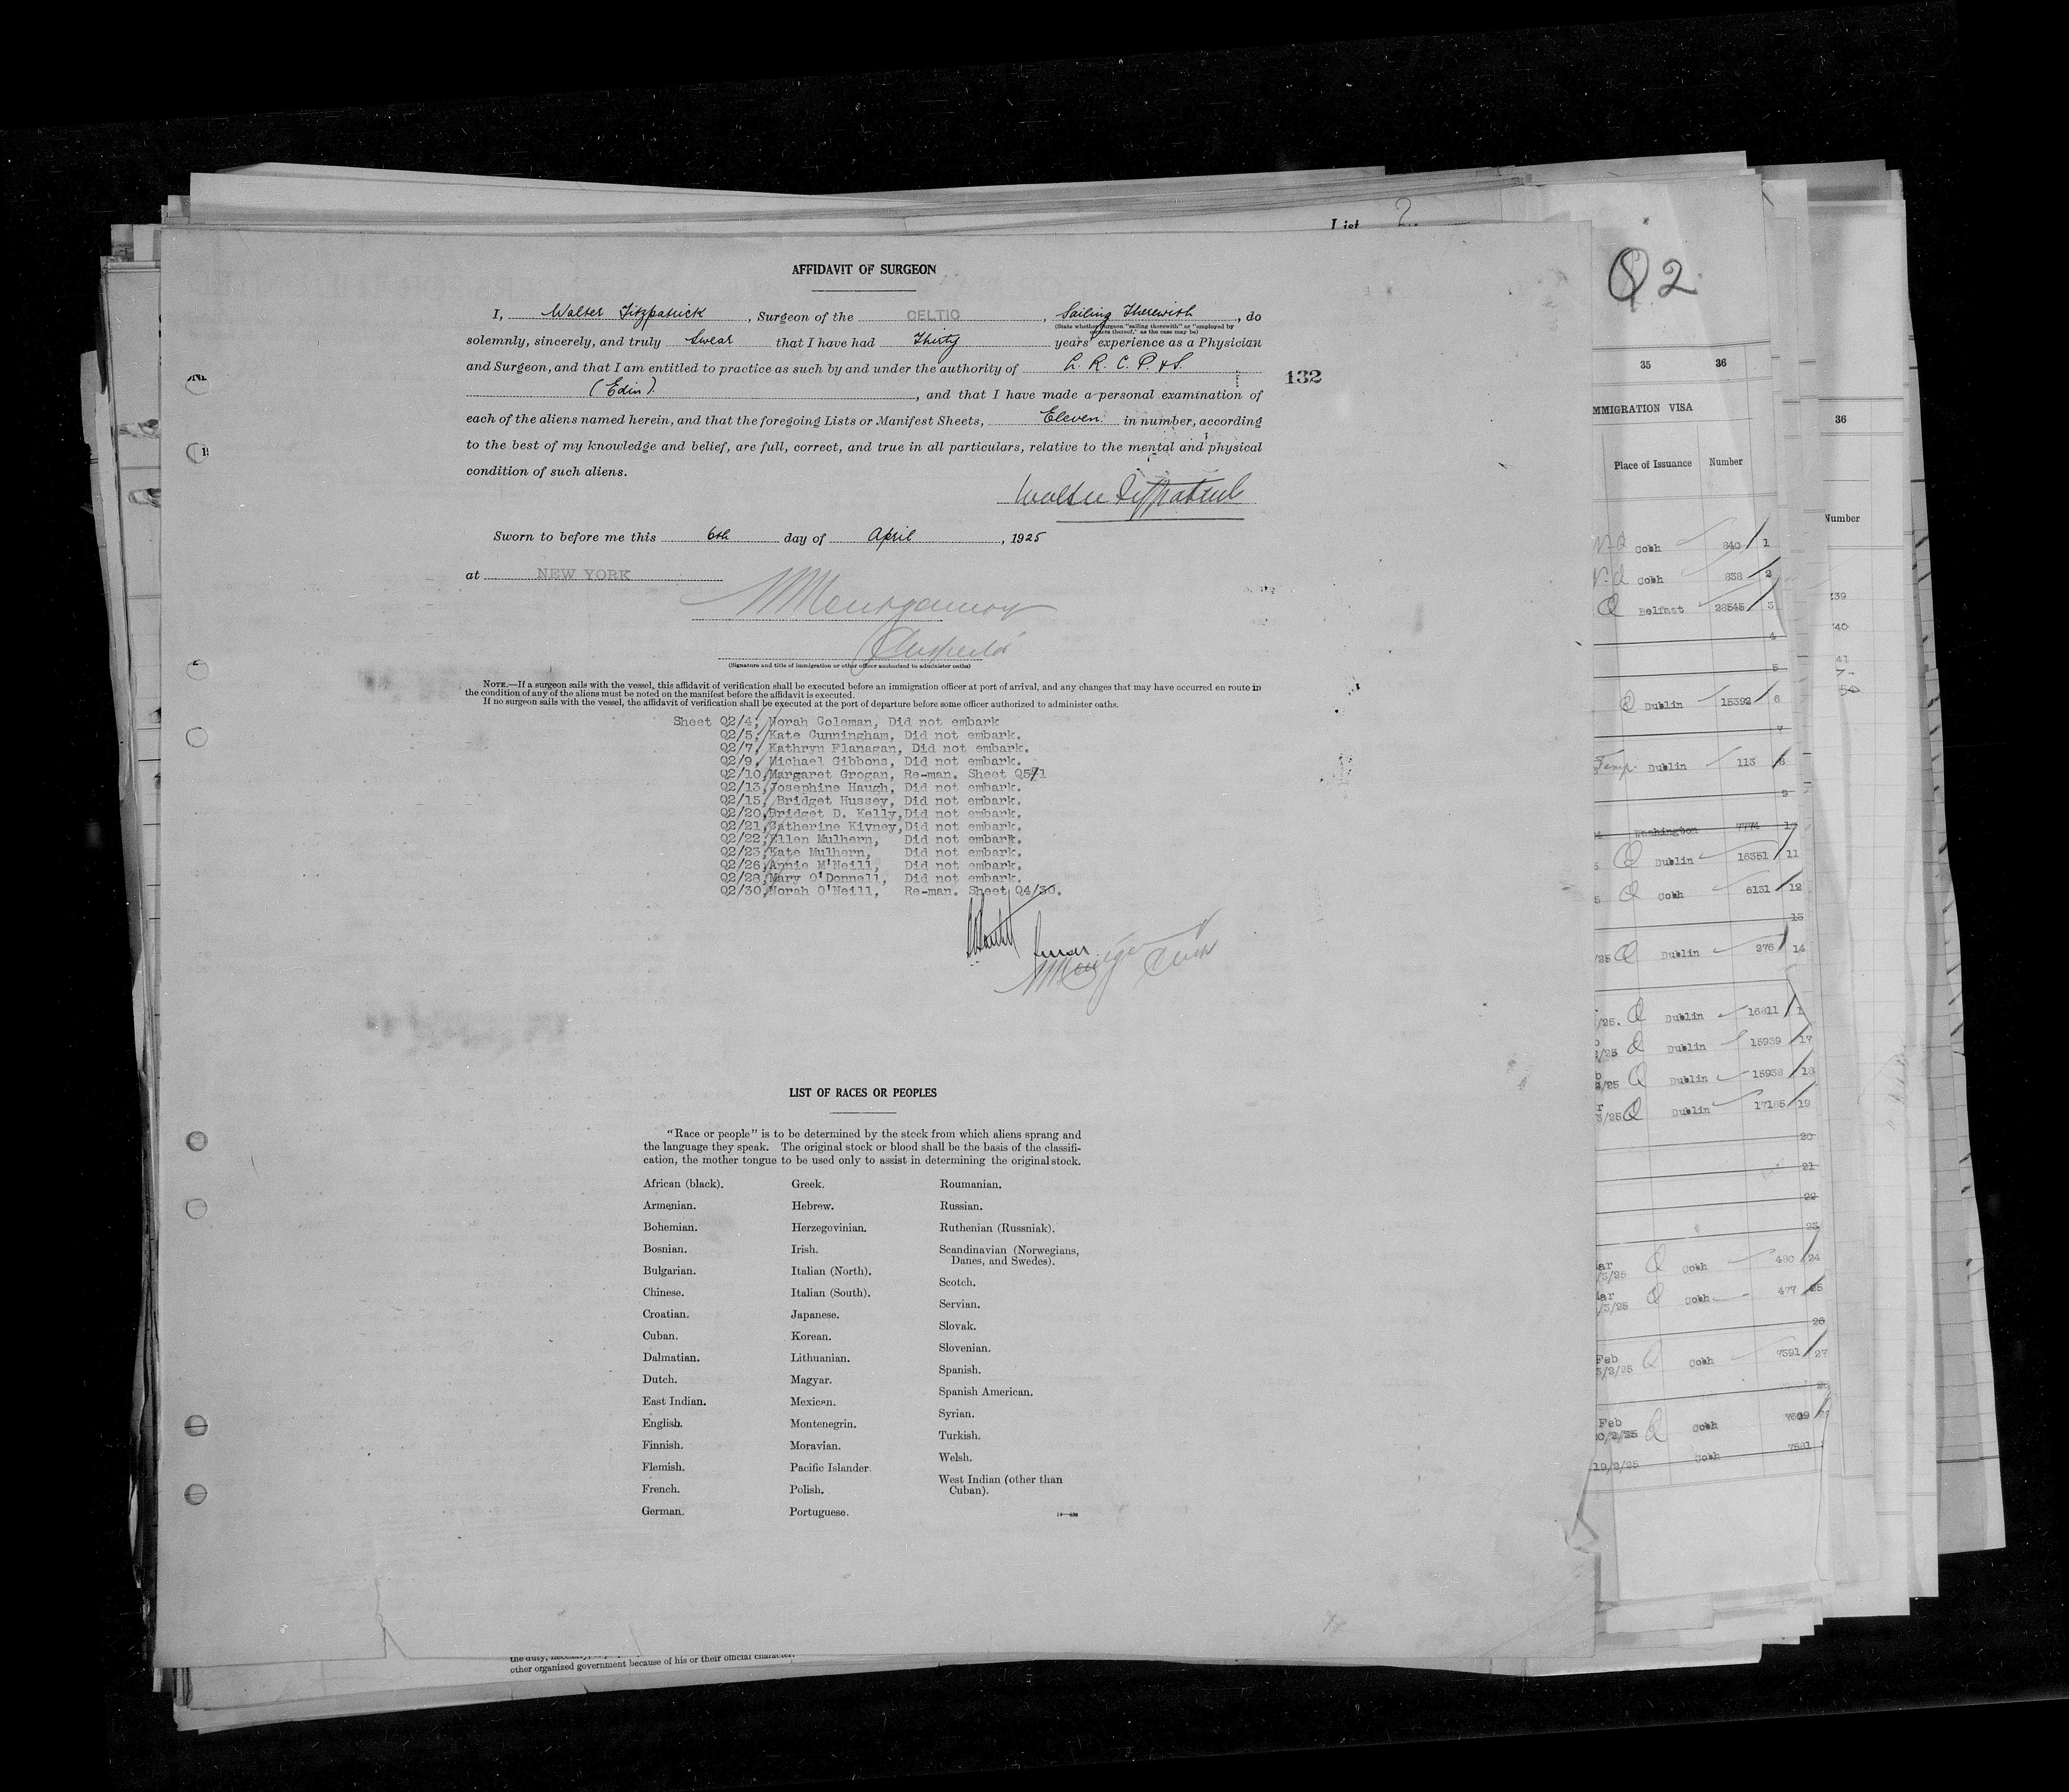 List 2
AFFIDAVIT OF SURGEON
I, Walter Fitzpatrick, Surgeon of the CELTIC, Sailing Therewith, do
(State whether surgeon "sailing therewith" or "employed by
owners thereof," as the case may be)
solemnly, sincerely, and truly Swear that I have had Thirty years' experience as a Physician
and Surgeon, and that I am entitled to practice as such by and under the authority of L. R. C. P. & S.
(Edin), and that I have made a personal examination of
132
each of the aliens named herein, and that the foregoing Lists or Manifest Sheets, Eleven in number, according
to the best of my knowledge and belief, are full, correct, and true in all particulars, relative to the mental and physical
condition of such aliens.
Walter Fitzpatrick
Sworn to before me this 6th day of April, 1925
at NEW YORK
Montgomery
(Signature and title of immigration or other officer authorized to administer oaths)
NOTE.—If a surgeon sails with the vessel, this affidavit of verification shall be executed before an immigration officer at port of arrival, and any changes that may have occurred en route in
the condition of any of the aliens must be noted on the manifest before the affidavit is executed.
If no surgeon sails with the vessel, the affidavit of verification shall be executed at the port of departure before some officer authorized to administer oaths.
Sheet Q2/4, Norah Coleman, Did not embark
Q2/5, Kate Cunningham, Did not embark.
Q2/7, Kathryn Flanagan, Did not embark.
Q2/9, Michael Gibbons, Did not embark.
Q2/10, Margaret Grogan, Re-man. Sheet Q5/1
Q2/13, Josephine Haugh, Did not embark.
Q2/15, Bridget Hussey, Did not embark.
Q2/20, Bridget D. Kelly, Did not embark.
Q2/21, Catherine Kivney, Did not embark.
Q2/22, Ellen Mulhern, Did not embark.
Q2/23, Kate Mulhern, Did not embark.
Q2/26, Annie M'Neill, Did not embark.
Q2/28, Mary O'Donnell, Did not embark.
Q2/30, Norah O'Neill, Re-man. Sheet Q4/30.
LIST OF RACES OR PEOPLES
"Race or people" is to be determined by the stock from which aliens sprang and
the language they speak. The original stock or blood shall be the basis of the classifi-
cation, the mother tongue to be used only to assist in determining the original stock.
African (black).
Armenian.
Bohemian.
Bosnian.
Bulgarian.
Chinese.
Croatian.
Cuban.
Dalmatian.
Dutch.
East Indian.
English.
Finnish.
Flemish.
French.
German.
Greek.
Hebrew.
Herzegovinian.
Irish.
Italian (North).
Italian (South).
Japanese.
Korean.
Lithuanian.
Magyar.
Mexican.
Montenegrin.
Moravian.
Pacific Islander.
Polish.
Portuguese.
Roumanian.
Russian.
Ruthenian (Russniak).
Scandinavian (Norwegians,
Danes, and Swedes).
Scotch.
Servian.
Slovak.
Slovenian.
Spanish.
Spanish American.
Syrian.
Turkish.
Welsh.
West Indian (other than
Cuban).
other organized government because of his or their official character.
Q2
35 36
IMMIGRATION VISA
Place of Issuance Number
Cobh 840 1
Cobh 838 2
Q Belfast 28545 3
4
5
Q Dublin 15392 6
7
Temp. Dublin 113 8
9
Washington 7774 10
Q Dublin 16351 11
Q Cobh 6131 12
13
/25 Q Dublin 276 14
/25. Q Dublin 16811 1
/25 Q Dublin 15939 17
/25 Q Dublin 15938 18
3/25 Q Dublin 17165 19
20
21
22
23
ar
/3/25 Q Cobh 480 24
ar
/3/25 Q Cobh 477 25
26
Feb
3/2/25 Q Cobh 7391 27
Feb
20/2/25 Q Cobh 7609
19/2/25 Cobh 7581
36
Number